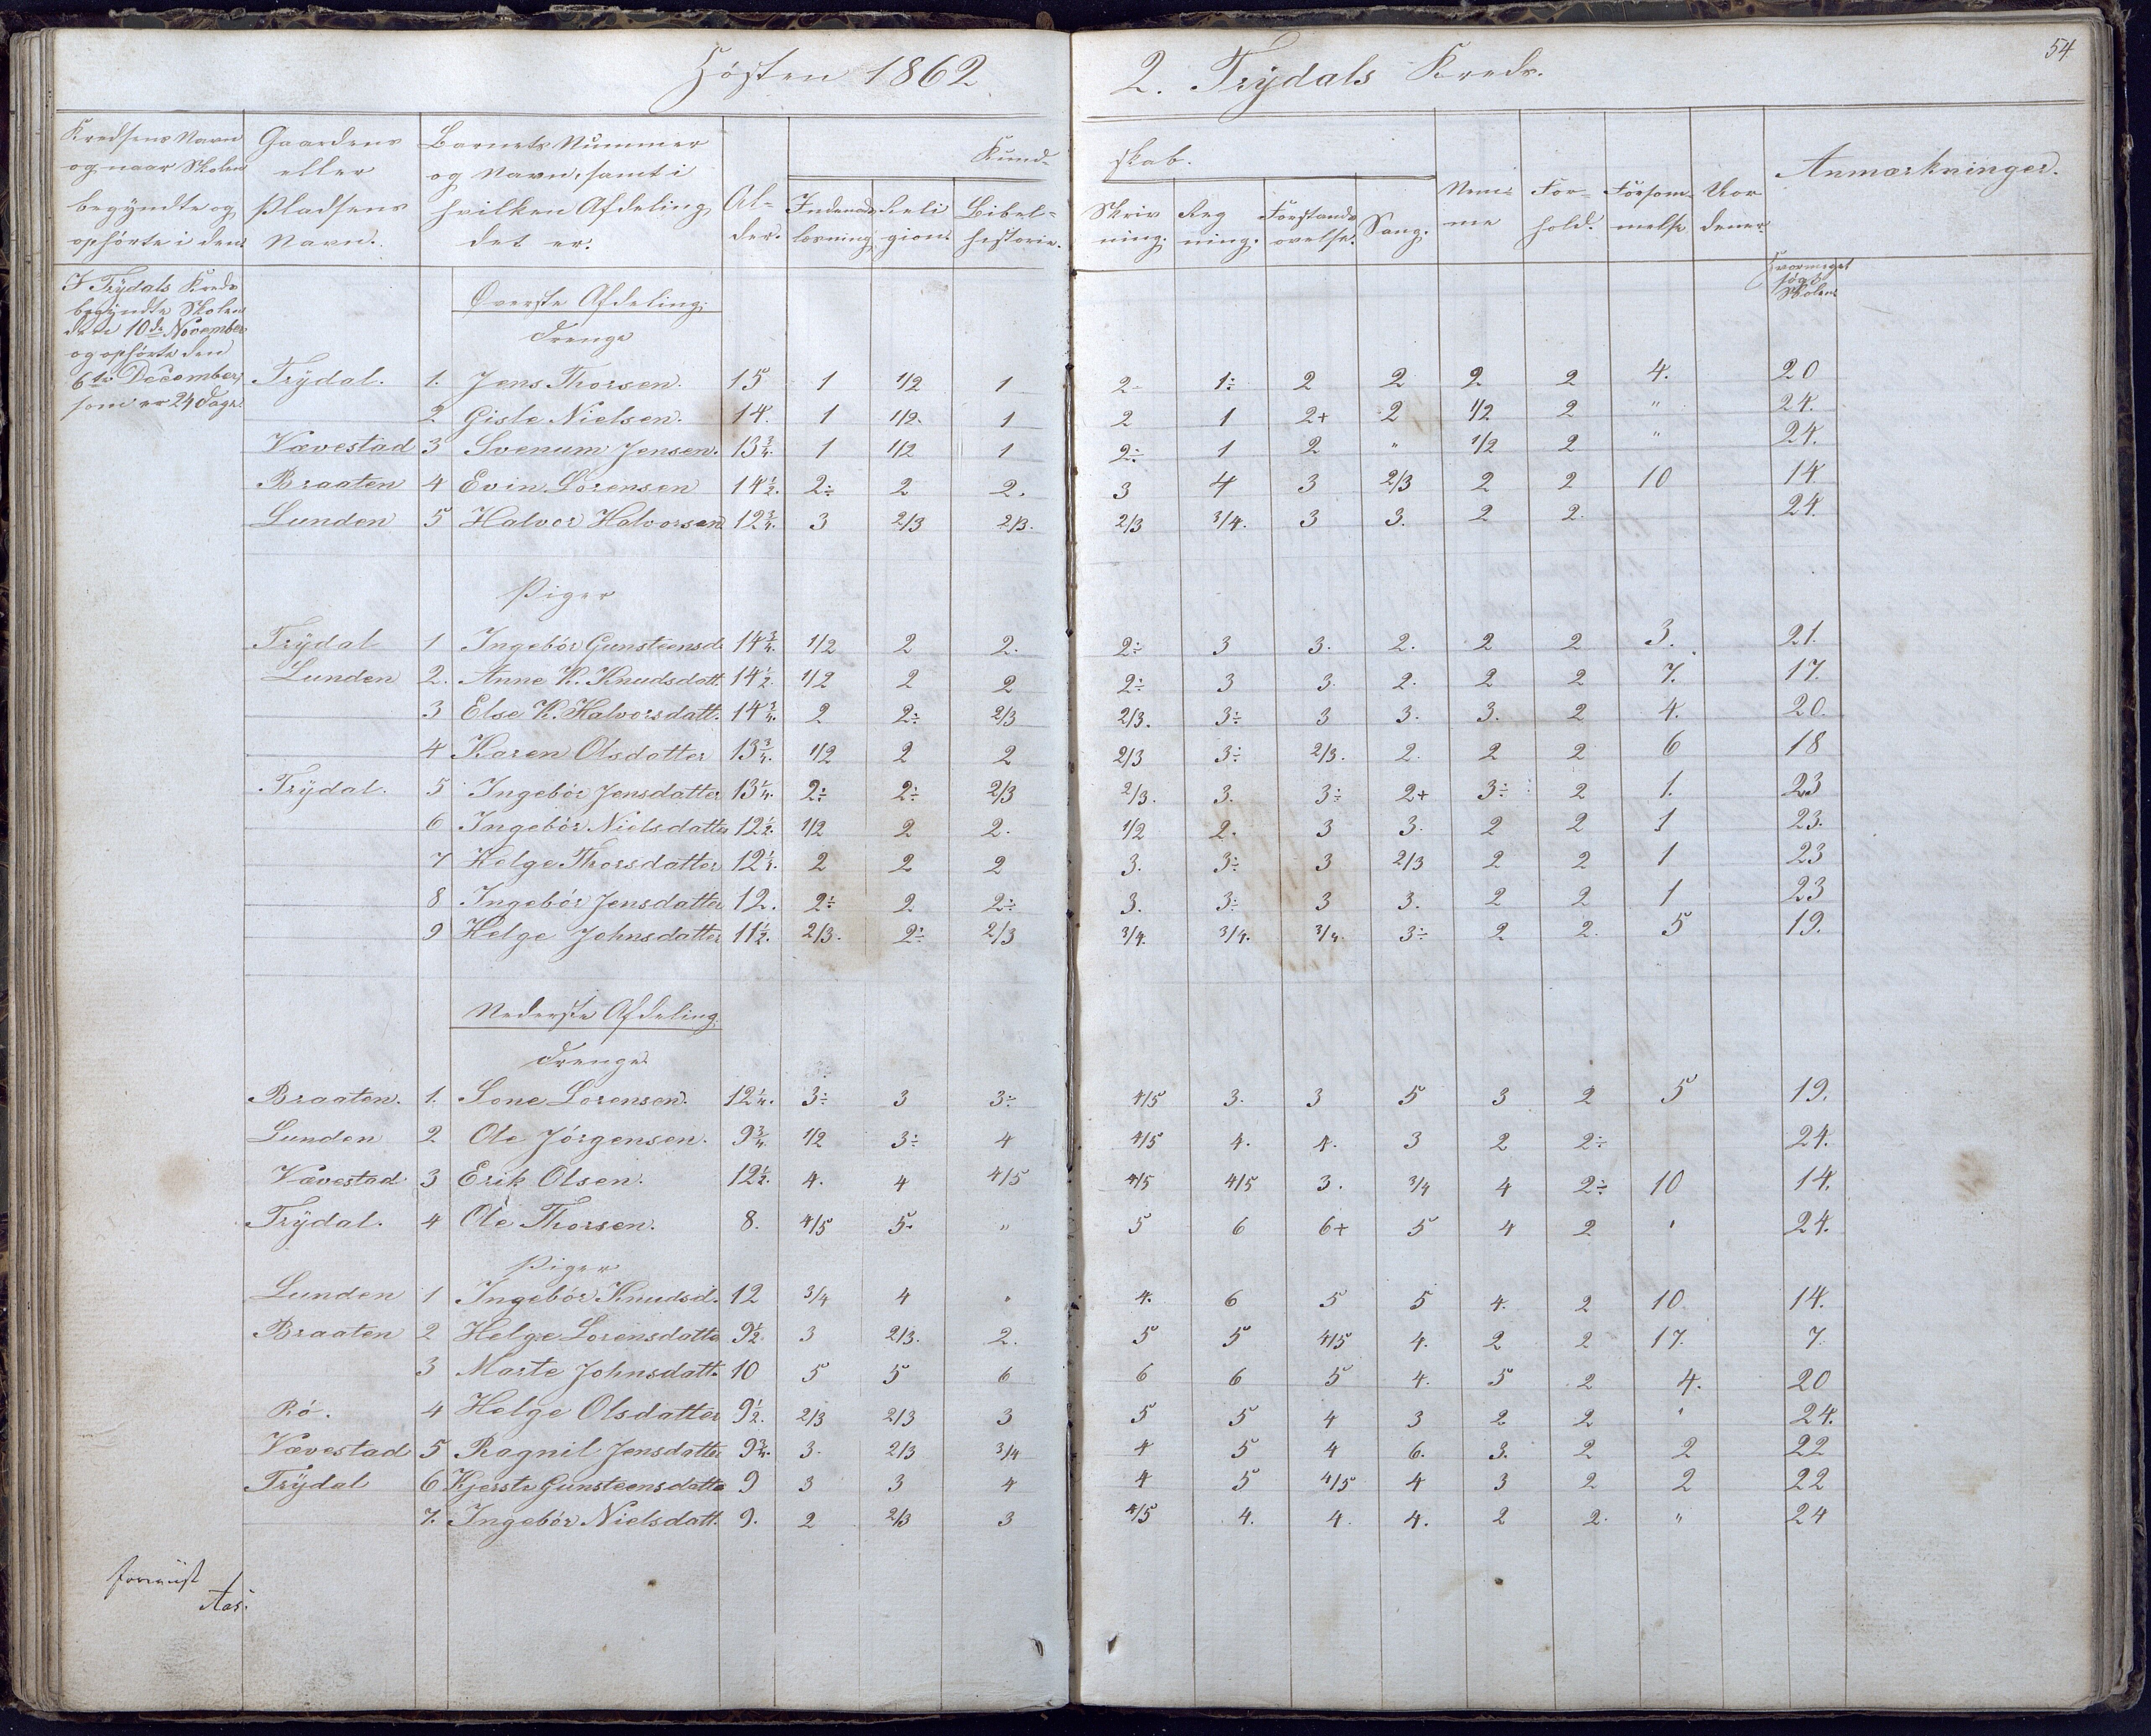 Hösten 1862.
2. Trÿdals Kreds.
54
Kredsens Navn og naar Skolen begyndte og ophörte i den.
Gaardens eller Pladsens Navn.
Barnets Nummer og Navn, samt i hvilken Afdeling det er.
Alder.
Kundskab.
Indenadslæsning
Religion
Bibelhistorie.
Skrivning.
Regning.
Forstandsøvelse.
Sang.
Nemme
Forhold.
Forsömmelse
Anmærkninger.
Hvormeget
søgt
Skolen
I Trÿdals Kreds
begyndte Skolen
den 10de November
og ophörte den
6te December,
som er 24 Dage.
Øverste Afdeling.
Drenge
Trÿdal. 1. Jens Thorsen. 15 1 1/2 1 2 1÷ 2 2 2 2 4. 20
2 Gisle Nielsen. 14. 1 1/2 1 2 1 2+ 2 1/2 2 " 24.
Vævestad 3 Svenum Jensen. 13 3/4. 1 1/2 1 2÷ 1 2 " 1/2 2 " 24.
Braaten 4 Evin Lorensen 14 1/2. 2÷ 2 2. 3 4 3 2/3 2 2 10 14
Lunden 5 Halvor Halvorsen 12 3/4. 3 2/3 2/3. 2/3 3/4. 3 3. 2 2. 24
Piger
Trÿdal 1 Ingebör Gunsteensd. 14 3/4. 1/2 2 2. 2÷ 3 3. 2. 2 2 3. 21.
Lunden 2. Anne K. Knudsdatt. 14 1/2. 1/2 2 2 2÷ 3 3. 2. 2 2 7. 17.
3 Else K. Halvorsdatt. 14 3/4. 2 2÷ 2/3 2/3. 3÷ 3 3. 3. 2 4. 20.
4 Karen Olsdatter 13 3/4. 1/2 2 2 2/3 3÷ 2/3. 2. 2 2 6 18
Trÿdal. 5 Ingebör Jensdatter 13 1/4. 2÷ 2÷ 2/3 2/3. 3. 3÷ 2+ 3÷ 2 1. 23
6 Ingebör Nielsdatter 12 1/2. 1/2 2 2. 1/2 2. 3 3. 2 2 1 23.
7 Helge Thorsdatter 12 1/4. 2 2 2 3. 3÷ 3 2/3 2 2 1 23
8 Ingebör Jensdatter 12. 2÷ 2 2÷ 3. 3÷ 3 3. 2 2 1 23
9 Helge Johnsdatter 11 1/2. 2/3. 2÷ 2/3 3/4. 3/4. 3/4. 3÷ 2 2. 5 19.
Nederste Afdeling.
Drenge
Braaten. 1. Lone Lorensen. 12 1/4. 3÷ 3 3÷ 4/5 3. 3 5 3 2 5 19.
Lunden 2 Ole Jörgensen. 9 3/4. 1/2 3÷ 4 4/5 4. 4. 3 2 2÷ 24.
Vævestad 3 Erik Olsen. 12 1/2. 4. 4 4/5 4/5 4/5 3. 3/4 4 2÷ 10 14.
Trÿdal. 4 Ole Thorsen. 8. 4/5 5. " 5 6 6+ 5 4 2 ' 24.
Piger
Lunden 1 Ingebör Knudsd. 12 3/4 4 " 4. 6 5 5 4. 2 10. 14.
Braaten 2 Helge Lorensdatte 9 1/2. 3 2/3. 2. 5 5 4/5 4. 2 2 17. 7.
3 Marte Johnsdatt. 10 5 5 6 6 6 5 4. 5 2 4. 20
Rö. 4 Helge Olsdatter 9 1/2. 2/3 2/3 3 5 5 4 3 2 2 ' 24.
Vævestad 5 Ragnil Jensdatter 9 3/4. 3. 2/3 3/4 4 5 4 6. 3. 2 2 22
Trÿdal 6 Kjerste Gunsteensdatte 9 3 3 4 4 5 4/5 4 3 2 2 22
7. Ingebör Nielsdatt. 9. 2 2/3 3 4/5 4. 4. 4. 2 2. " 24
Aas.